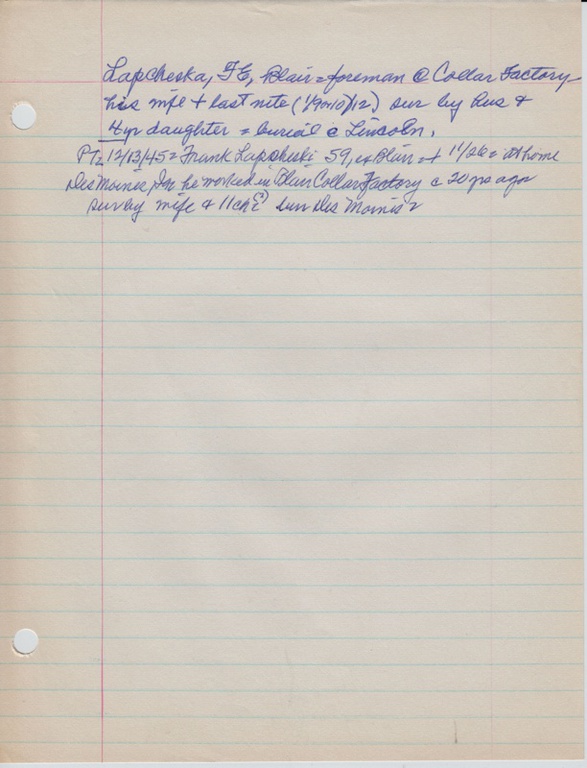 Lapcheska, F E, Blair = foreman @ Collar Factory
his wife + last nite (1/9 or 10/12) sur by hus &
4yr daughter = burial @ Lincoln.
PT 12/13/45 = Frank Lapcheski 59, ex Blair = + 11/26 = at home
Des Moines, Ia he worked in Blair Collar Factory c 20 yrs ago
sur by wife & 11 ch bur Des Moines